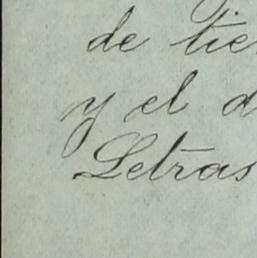 de tie
y el d
Letras